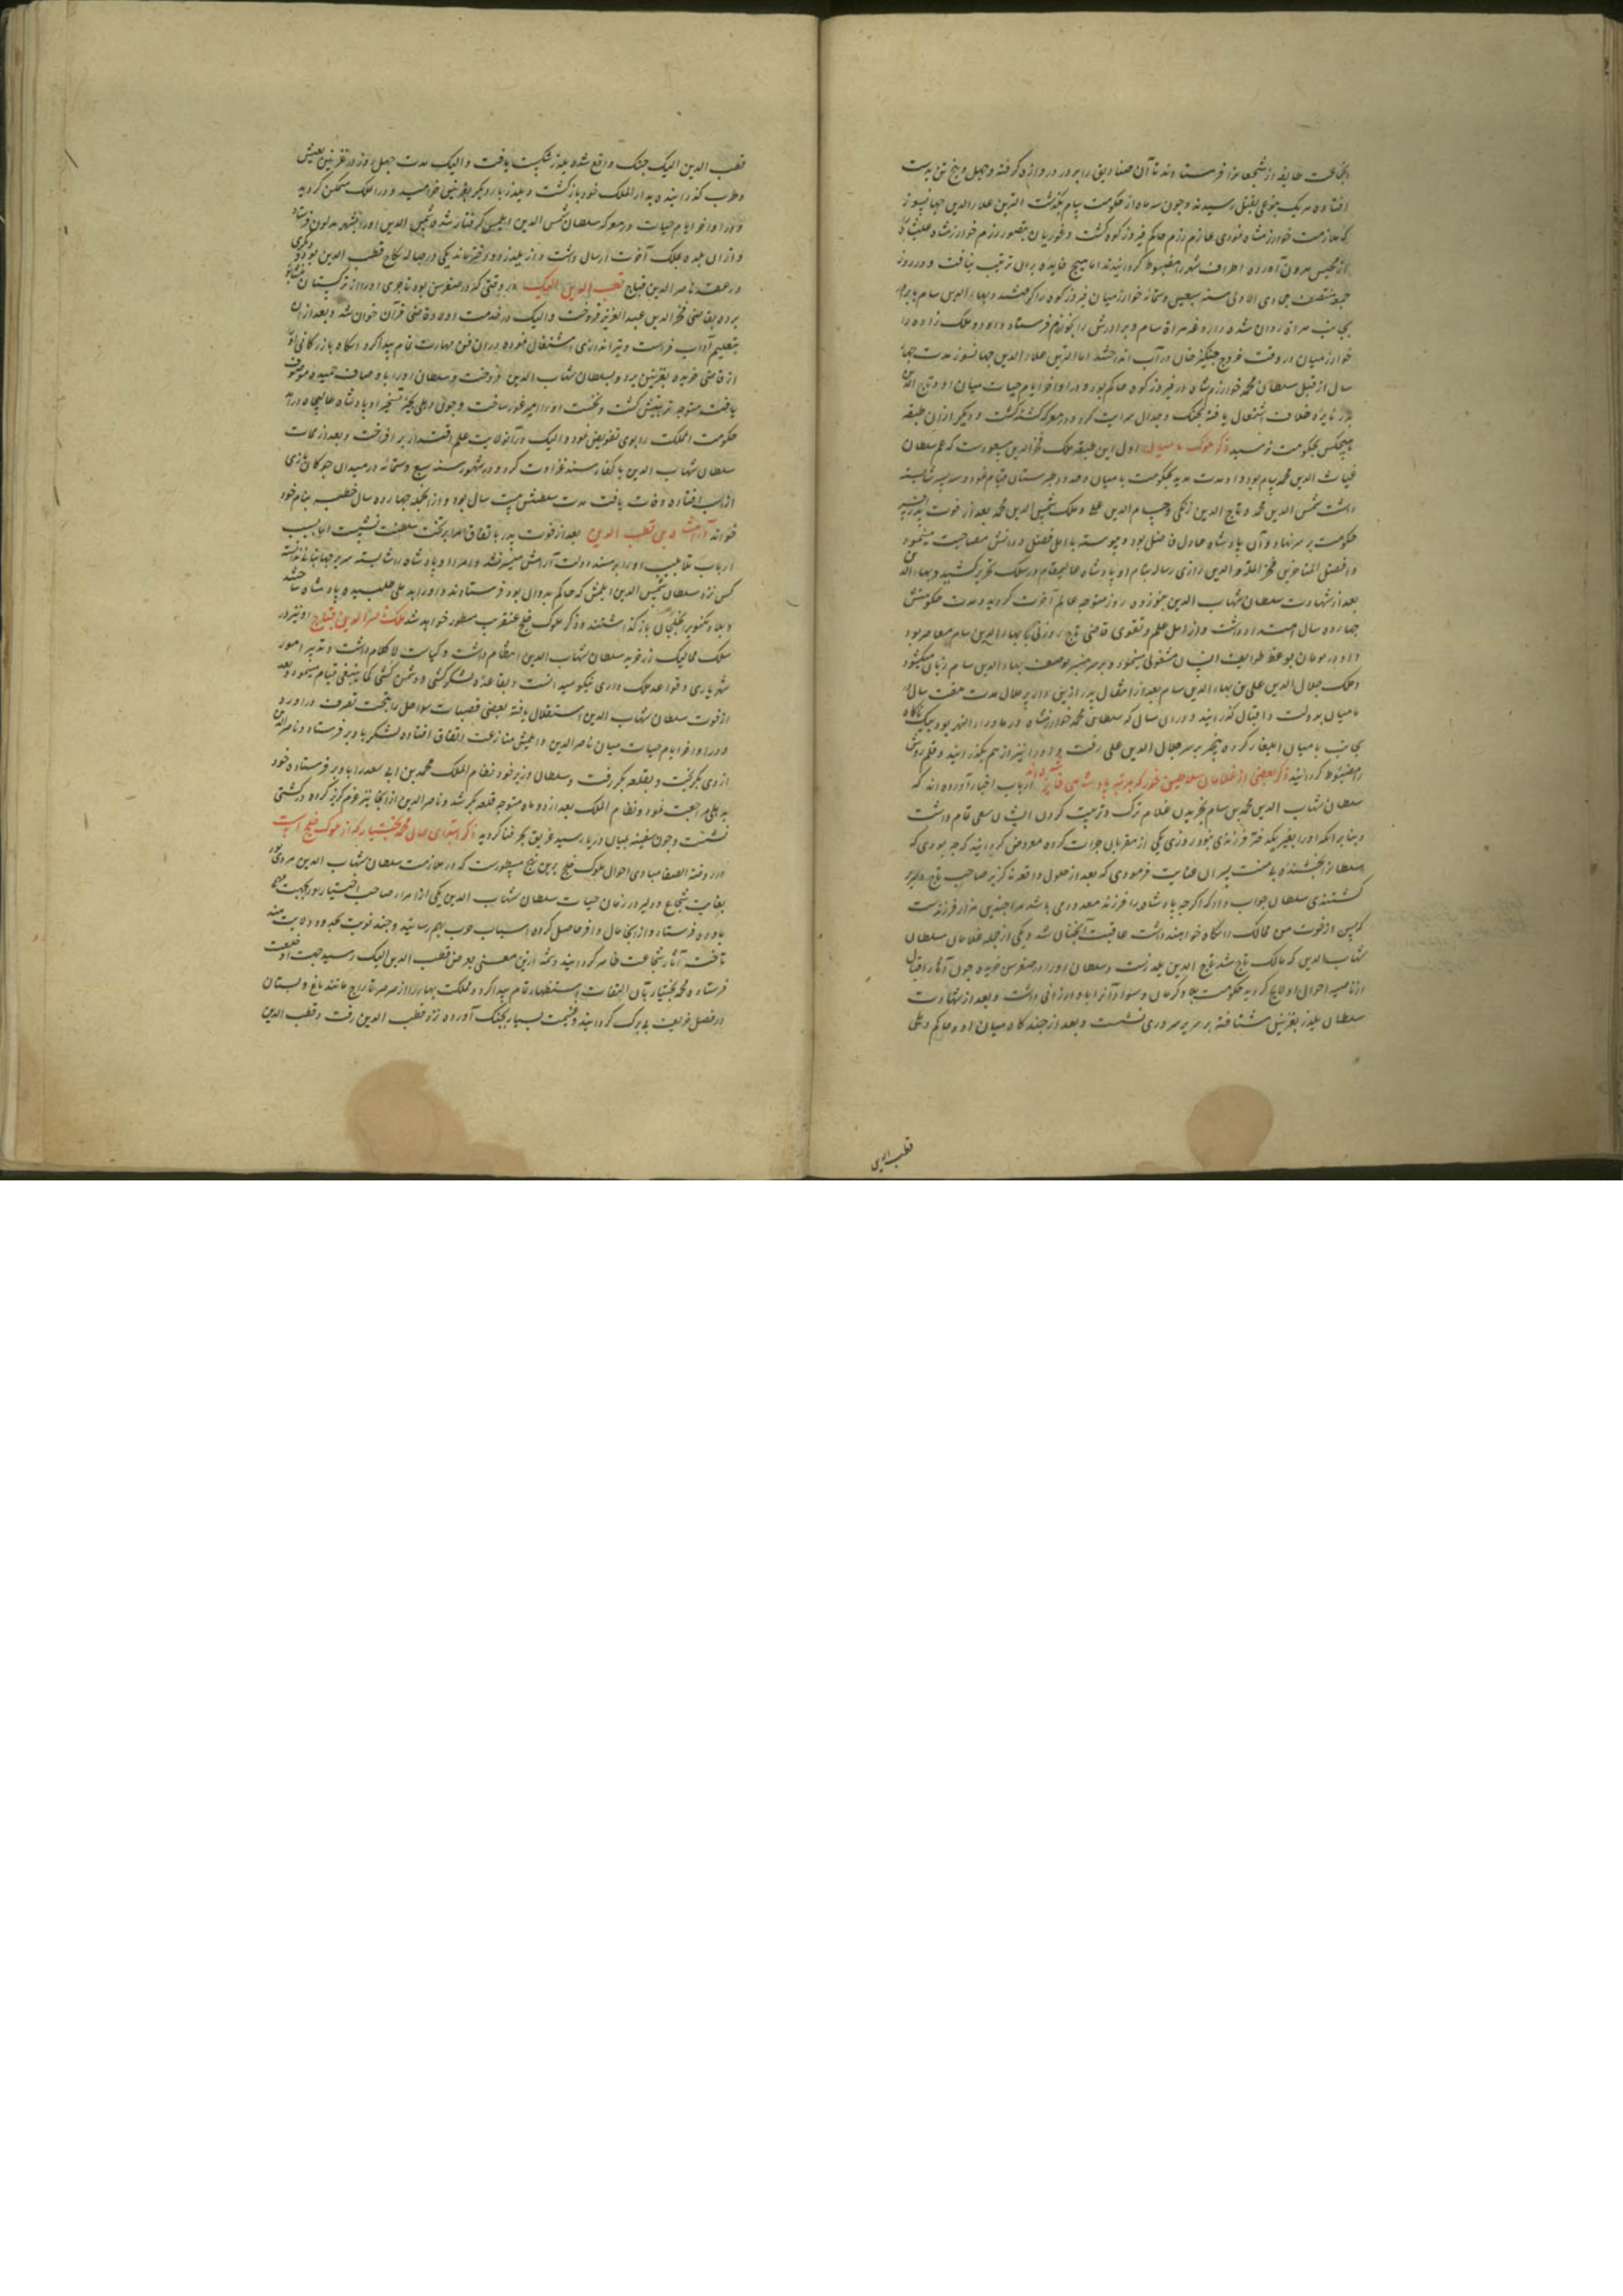 انجماعت طایفه از شجعانرا فرستادند تا آن صنادیق را بر در دروازه گرفته و چهل و پنج تن بدست
افتاده هریک بنوعی بقتل رسیدند و چون سه ماه از حکومت بیام بگذشت اتزین علاءالدین جهانسوز
که ملازمت خوارزمشاه نمودی عازم رزم حاکم فیروزکوه گشت و غوریان بتصور رزم خوارزمشاه علیشاه
از محبس بیرون آورده اطراف شهر را مضبوط گردانیدند اما هیچ فایده بران ترتیب نیافت و در روز
جمعه منتصف جمادی الاولی سنه سبعین وستمائه خوارزمیان فیروزکوه را گرفتند و بهاءالدین سام با برادر
بجانب هراة روان شده داروغه هراة سام و برادرش را بخوارزم فرستاد و او دو ملک زاده را
خوارزمیان در وقت خروج چنگیزخان در آب انداختند اما اتزین علاءالدین جهانسوز مدت چهار
سال از قبل سلطان محمد خوارزمشاه در فیروزکوه حاکم بود و در اواخر ایام حیات میان او و تاج الدین
یلدز نایره خلاف اشتعال یافته بجنگ و جدال سرایت کرد و در معرکه کشته گشت و دیگر ازان طبقه
هیچکس بحکومت نرسید ذکر ملوک بامیان اول این طبقه ملک فخرالدین مسعودست که عم سلطان
غیاث الدین محمد سام بود و او مدت مدید بحکومت بامیان و حدود طبرستان قیام نمود و سه پسر شایسته
داشت شمس الدین محمد و تاج الدین زنگی و حسام الدین علی و ملک شمس الدین محمد بعد از فوت پدر افسر
حکومت بر سر نهاد و آن پادشاه عادل فاضل بود و پیوسته با اهل فضل و دانش مصاحبت مینمود
و افضل المتاخرین فخر الملة و الدین رازی رساله بنام او پادشاه عالیمقام در سلک تحریر کشید و بهاءالدین
بعد از شهادت سلطان شهاب الدین بنوزده روز متوجه عالم آخرت گردید و مدت حکومتش
چهارده سال امتداد داشت و از اهل علم و تقوی قاضی تاج زوزنی با بهاءالدین سام معاصر بود
و او در بامیان بوعظ طوایف انسان مشغولی مینمود و بر سر منبر بوصف بهاءالدین سام زبان میکشود
و ملک جلال الدین علی بن بهاءالدین سام بعد از انتقال پدر ازین دار پر ملال مدت هفت سال در
بامیان بدولت و اقبال گذرانید و دران سال که سلطان محمد خوارزمشاه در ماوراءالنهر بود بیک ناگاه
بجانب بامیان ایلغار کرده بیخبر بر سر جلال الدین علی رفت و او را نیز از هم بگذرانید و قلمروش
را مضبوط گردانید ذکر بعضی از غلامان سلاطین غور که بمرتبه پادشاهی فایز شده‌اند ارباب اخبار آورده‌اند که
سلطان شهاب الدین محمد بن سام بخریدن غلام ترک و تربیت کردن ایشان سعی تمام داشت
و بنا بر انکه او را بغیر یکدختر فرزندی نبود روزی یکی از مقربان جرات کرده معروض گردانید که چه بودی که
سلطانرا بخشنده بی منت پسران عنایت فرمودی که بعد از حلول واقعه ناگزیر صاحب تاج و سریر
گشتندی سلطان جواب داد که اگرچه پادشاهرا فرزند معدودی باشد مرا چندین هزار فرزندست
که پس از فوت من ممالک را نگاه خواهند داشت عاقبت آنچنان شد و یکی از جمله غلامان سلطان
شهاب الدین که مالک تاج شد تاج الدین یلدزست و سلطان او را در صغر سن خریده چون آثار اقبال
از ناصیه احوال او لایح گردید حکومت بلاد کرمان و سنوران را باو ارزانی داشت و بعد از شهادت
سلطان یلدز بغزنین شتافته بر سریر سروری نشست و بعد از چندگاه میان او و حاکم دهلی
قطب الدین
قطب الدین ایبک جنگ واقع شده یلدز شکست یافت و ایبک مدت چهل روز در غزنین بعیش
و طرب گذرانیده بدار الملک خود بازگشت و یلدز بار دیگر بغزنین خرامید و در الملک متمکن گردید
و در اواخر ایام حیات در معرکه سلطان شمس الدین ایلتمش گرفتار شده شمس الدین او را بشهر بدئون فرستاد
و ازان بلده بملک آخرت ارسال داشت و از یلدز دو دختر ماند یکی در حباله نکاح قطب الدین بود و دیگری
در عقد ناصر الدین قباج قطب الدین ایبک در وقتی که در صغر سن بود تاجری او را از ترکستان بنیشابور
برده بقاضی فخر الدین عبد العزیز فروخت و ایبک در خدمت اولاد قاضی قرآن خوان شد و بعد ازان
بتعلیم آداب فراست و تیراندازی اشتغال نموده دران فن مهارت تمام پیدا کرد و انگاه بازرگانی او را
از قاضی خریده بغزنین برد و بسلطان شهاب الدین فروخت و سلطان او را باوصاف حمیده موصوف
یافت متوجه تربیتش گشت و نخست او را امیر اخور ساخت و چون دهلی بحیز تسخیر او پادشاه عالیجاه درآمد
حکومت المملکت را بوی تفویض نمود و ایبک در آنولایت علم اقتدار بر افراخت و بعد از ممات
سلطان شهاب الدین با کفار هند غزاوت کرد و در شهور سنه سبع وستمائه در میدان چوگان بازی
از اسب افتاده وفات یافت مدت سلطنتش بیست سال بود و ازانجمله چهارده سال خطبه بنام خود
خواند آرامش بن قطب الدین بعد از فوت پدر باتفاق امرا بر تخت سلطنت نشست اما بسبب
کس نزد سلطان شمس الدین ایلتمش که حاکم بدوان بود فرستادند و او را بدهلی طلبیده پادشاه ساختند
و بلاد لکنوتی بخلجیان بازگذاشتند و ذکر ملوک خلج عنقریب مسطور خواهد شد ملک ناصر الدین قباج او نیز در
سلک ممالیک زرخرید سلطان شهاب الدین انتظام داشت و کیاست لاکلام داشت و تدبیر امور
شهریاری و قواعد ملک داری نیکو میدانست و بقاعده لشکرکشی و دشمن کشی کما ینبغی قیام مینمود و بعد
از فوت سلطان شهاب الدین استقلال یافته بعضی قصبات سواحل را بتحت تصرف درآورد
و در اواخر ایام حیات میان ناصر الدین و ایلتمش منازعت اتفاق افتاده لشکر باوبر فرستاد و ناصر الدین
از وی بگریخت و بقلعه بکر رفت و سلطان وزیر خود نظام الملک محمد بن ابی سعد را باوبر فرستاده خود
بدهلی مراجعت نمود و نظام الملک بعد از دو ماه متوجه قلعه بکر شد و ناصر الدین ازانجا نیز عزم گریز کرده در کشتی
نشست و چون سفینه بمیان دریا رسید غریق بحر فنا گردید ذکر ابتدای حال محمد بختیار که از ملوک خلج است
در روضة الصفا مبادی احوال ملوک خلج برین نهج مسطورست که در ملازمت سلطان شهاب الدین مردی بود
بغایت شجاع و دلیر در زمان حیات سلطان شهاب الدین یکی از امرا و صاحب اختیار او را بجهت مهم
باوده فرستاد و ازانجا مال وافر حاصل کرده اسباب حرب بهم رسانید و چند نوبت بحدود ولایت هند
تاخته آثار شجاعت ظاهر گردانید و شمه ازین معنی بعرض قطب الدین ایبک رسید جهت او خلعت
فرستاد و محمد بختیار بآن التفات استظهار تمام پیدا کرد و مملکت بهار را از صرصر تاراج مانند باغ و بستان
در فصل خریف بی برگ گردانید و غنیمت بسیار بچنگ آورده نزد قطب الدین رفت و قطب الدین